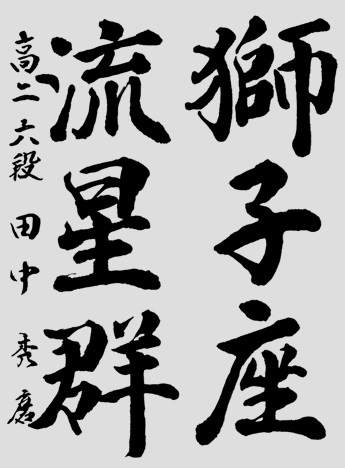 獅子座
流星群
高二六段田中秀磨